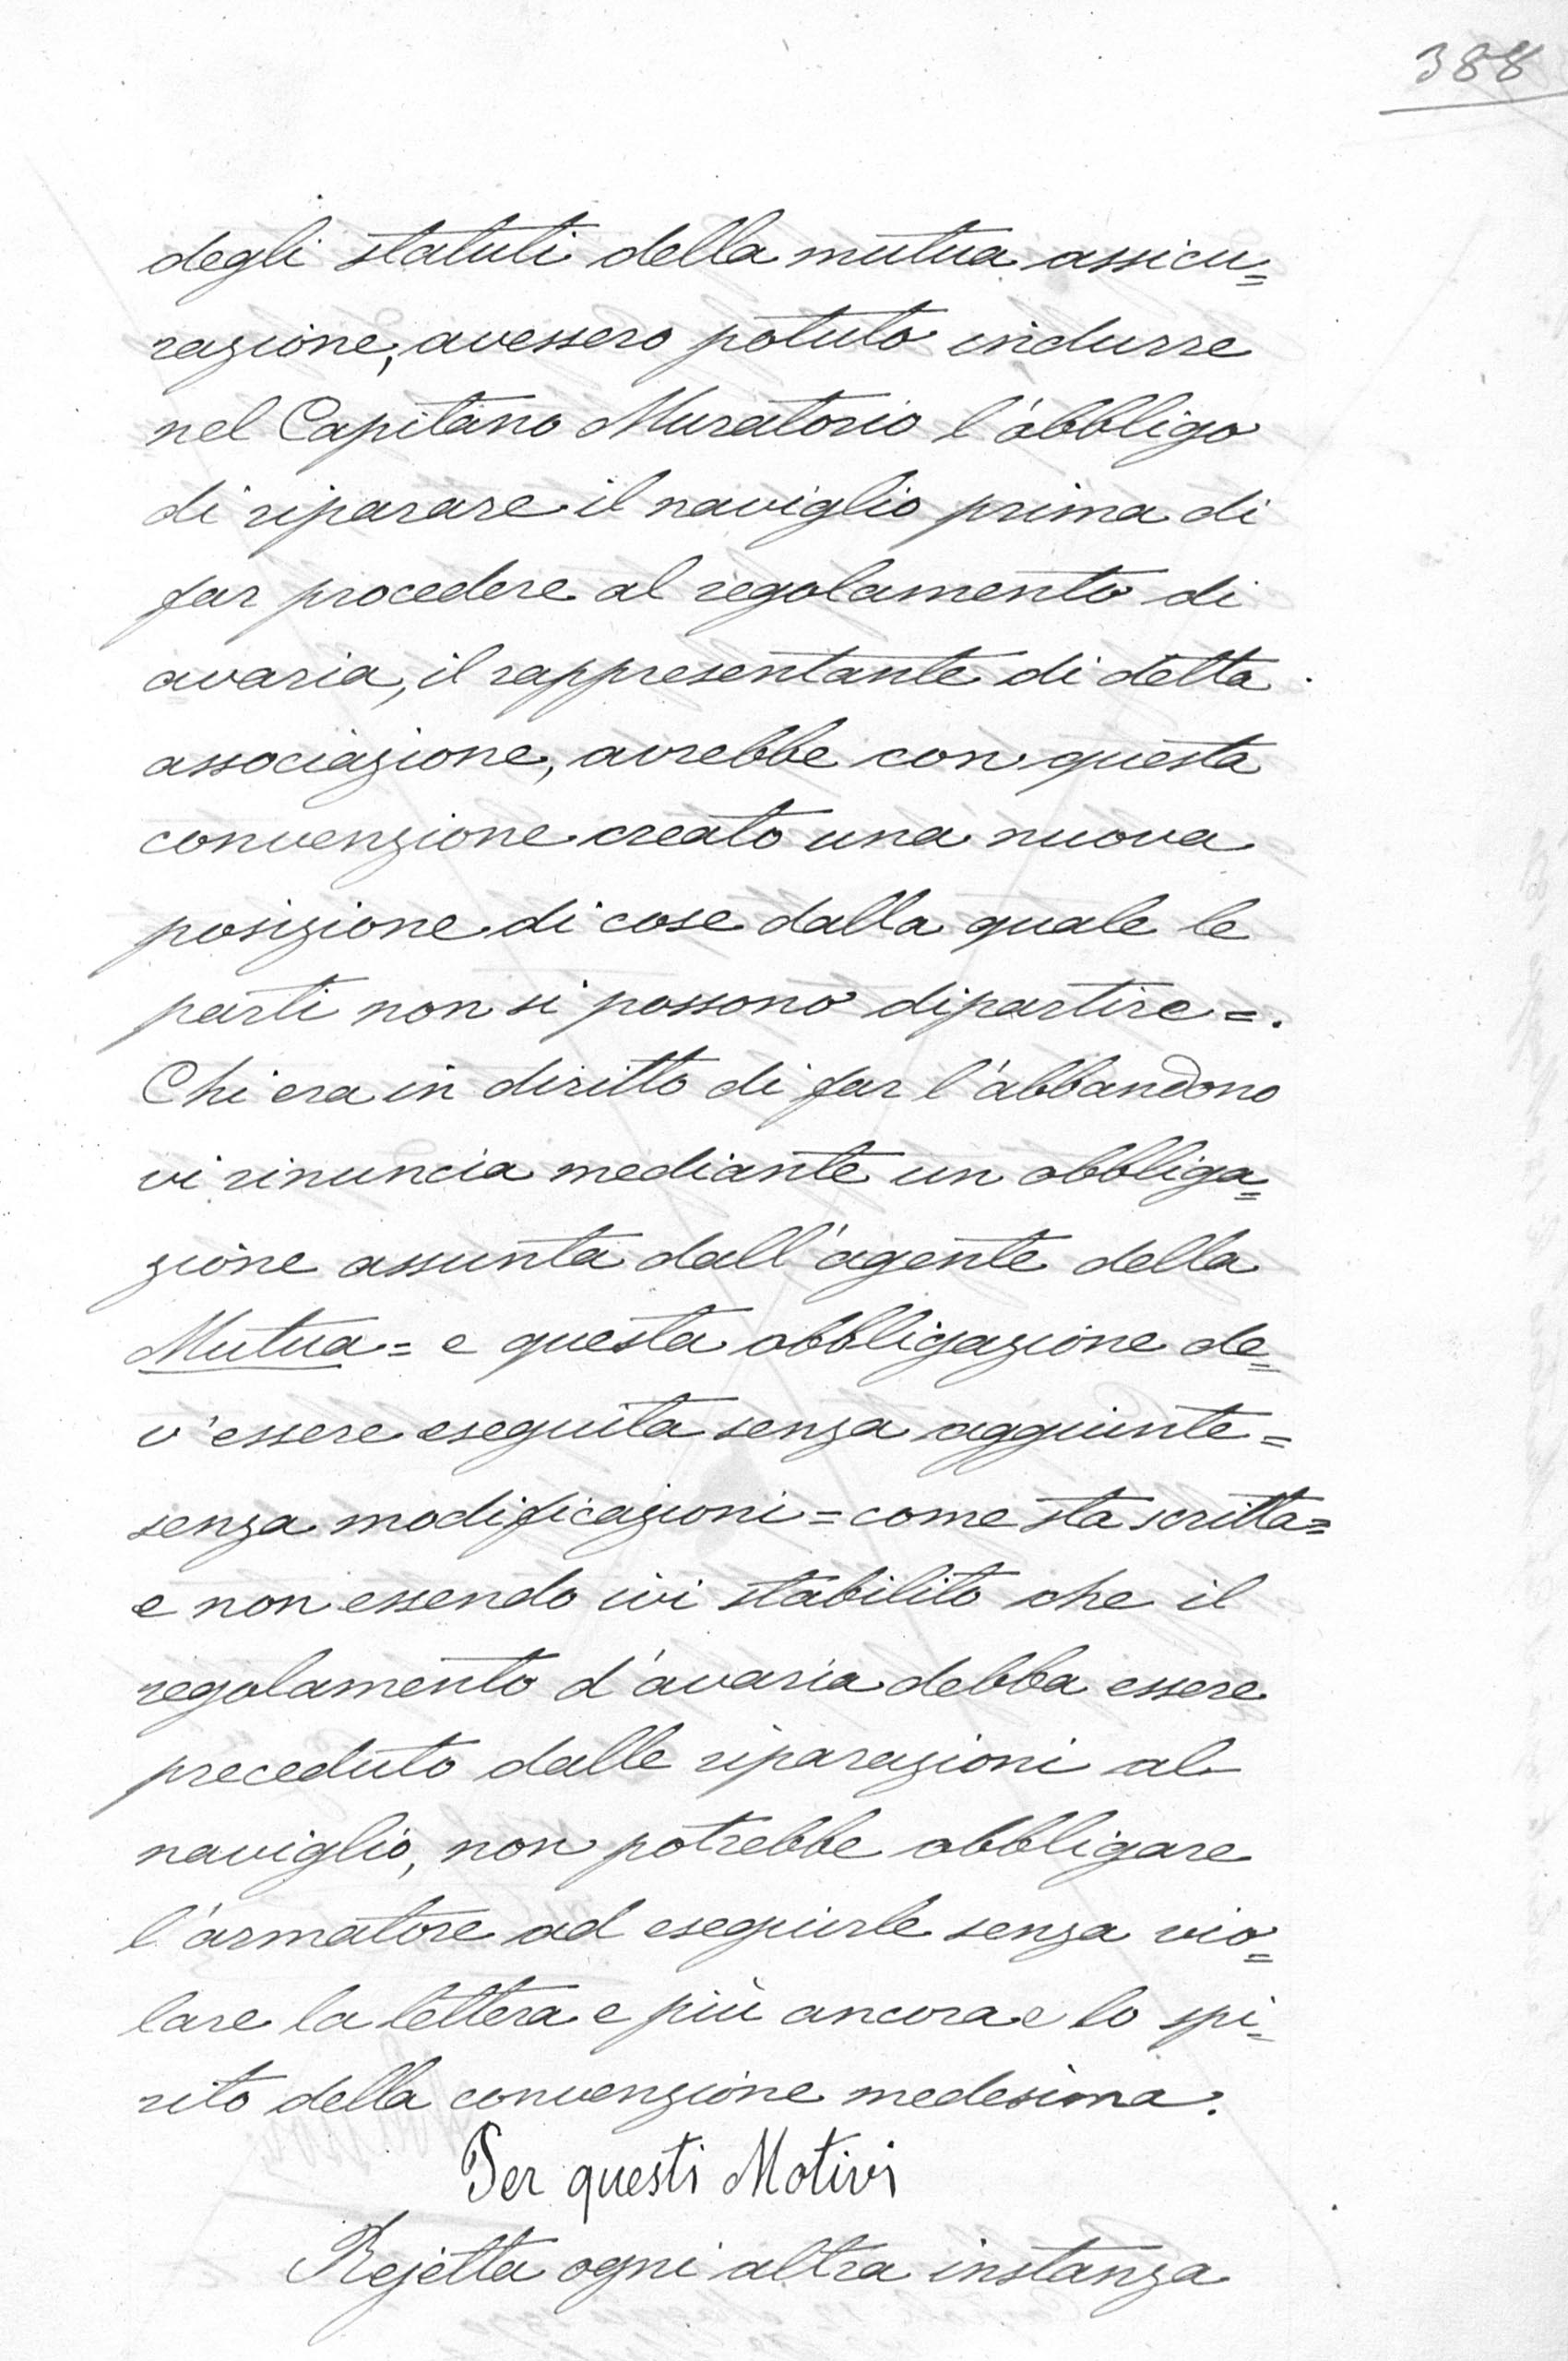 388
degli statuti della mutua assicu=
razione, avessero potuto indurre
nel Capitano Muratorio l'obbligo
di riparare il naviglio prima di
far procedere al regolamento di
avaria, il rappresentante di detta
associazione, avrebbe con questa
convenzione creato una nuova
posizione di cose dalla quale le
parti non si possono dipartire=.
Chi era in diritto di far l'abbandono
vi rinuncia mediante un obbliga=
zione assunta dall'agente della
Mutua= e questa obbligazione de=
v'essere eseguita senza aggiunte=
senza modificazioni=come sta scritta=
e non essendo ivi stabilito che il
regolamento d'avaria debba essere
preceduto dalle riparazioni al
naviglio, non potrebbe obbligare
l'armatore ad eseguirle senza vio=
lare la lettera e più ancora e lo spi=
rito della convenzione medesima.
Per questi Motivi
Rejetta ogni altra instanza